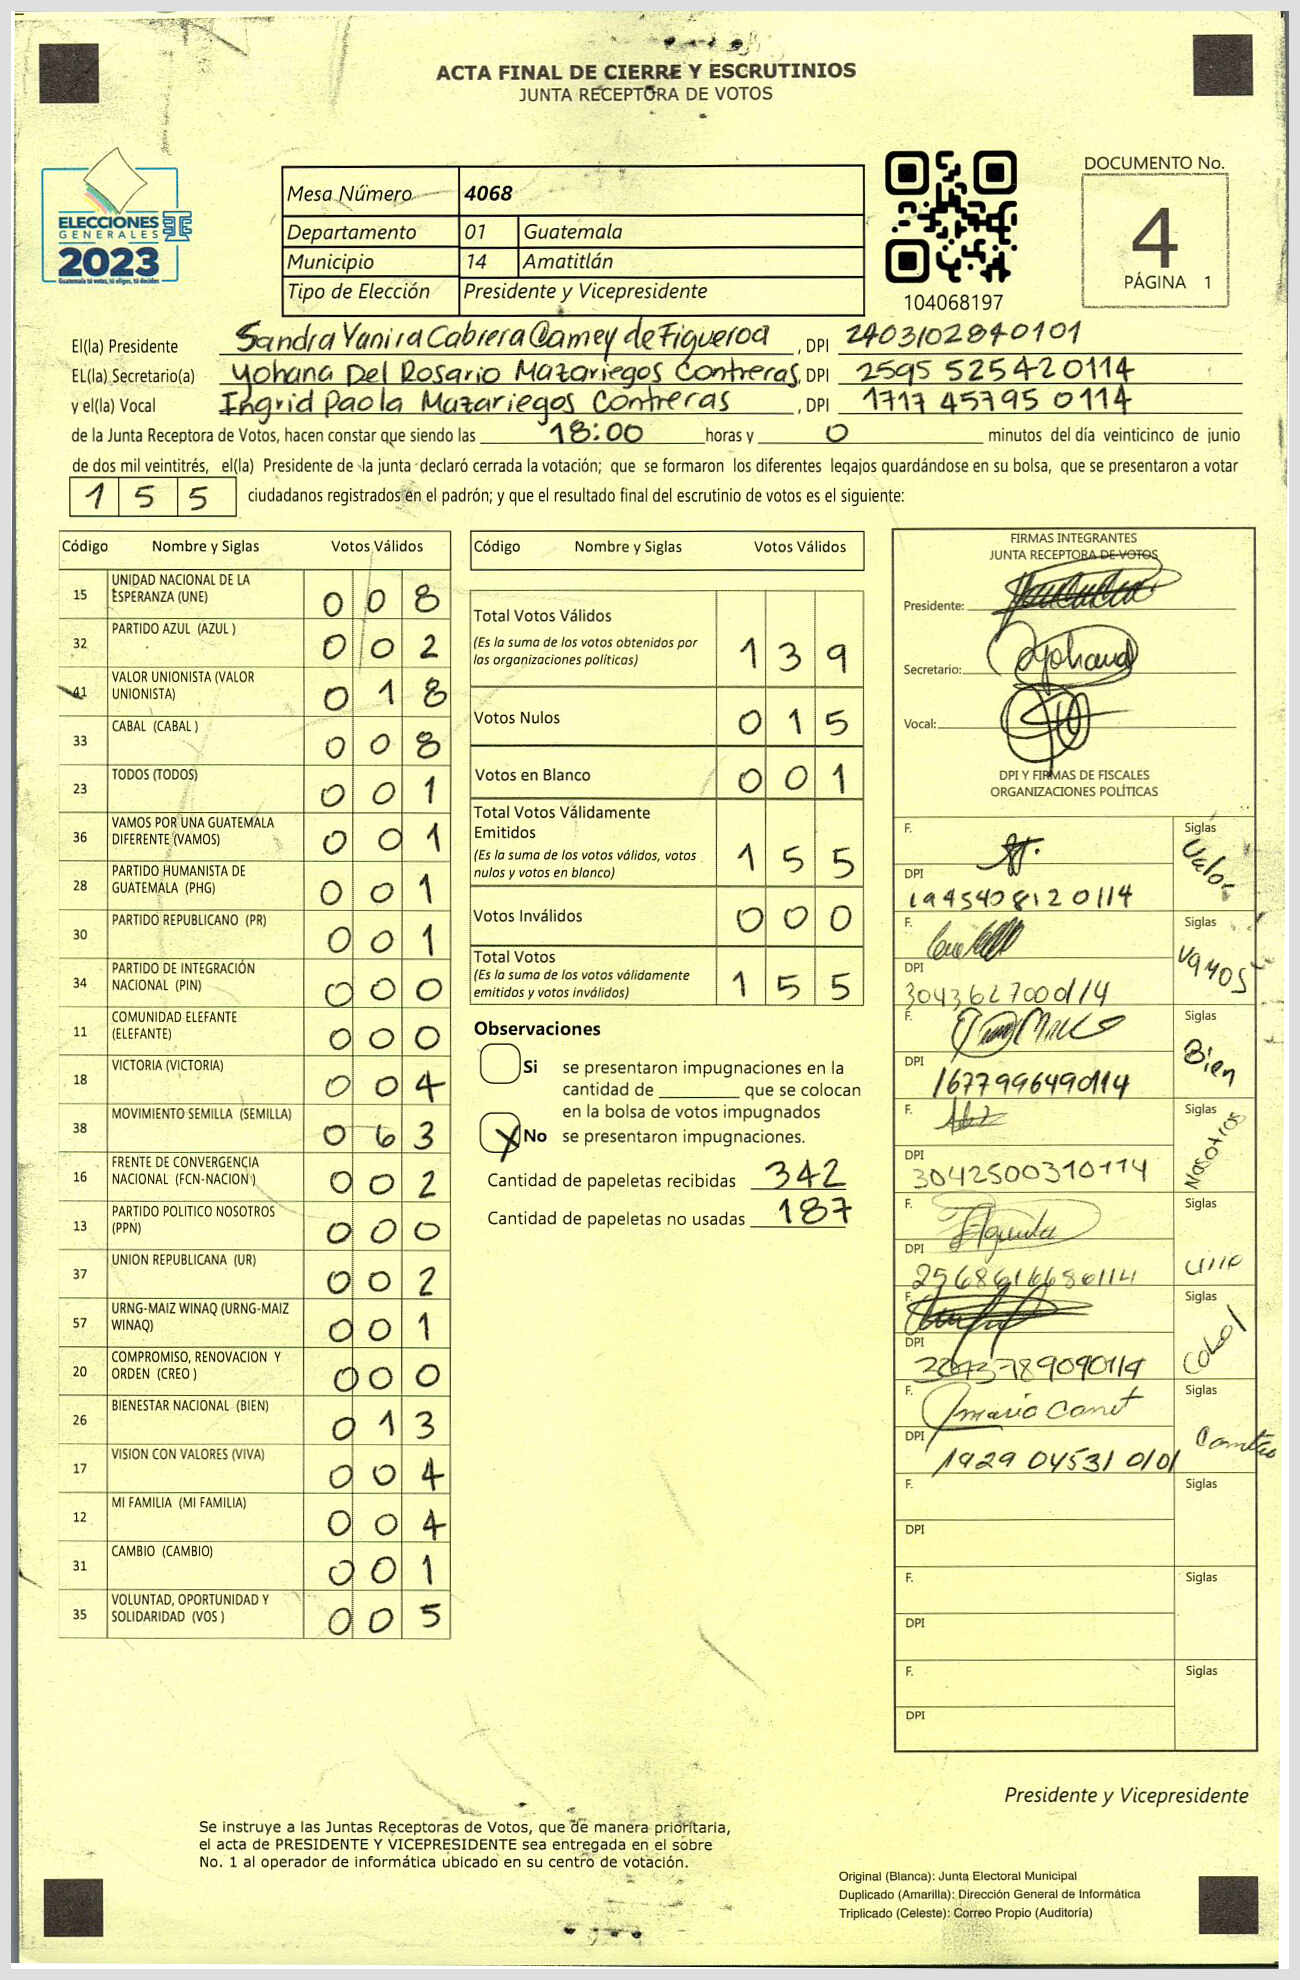 ACTA FINAL DE CIERRE Y ESCRUTINIOS
JUNTA RECEPTORA DE VOTOS
ELECCIONES
GENERALES
2023
Guatemala tú votas, tú eliges, tú decides
Mesa Número 4068
Departamento 01 Guatemala
Municipio 14 Amatitlán
Tipo de Elección Presidente y Vicepresidente
104068197
DOCUMENTO No.
4
PÁGINA 1
El(la) Presidente Sandra Yanira Cabrera Camey de Figueroa , DPI 2403102840101
EL(la) Secretario(a) Yohana Del Rosario Mazariegos Contreras, DPI 2595 52542 0114
y el(la) Vocal Ingrid Paola Mazariegos Contreras , DPI 1717 45795 0114
de la Junta Receptora de Votos, hacen constar que siendo las 18:00 horas y 0 minutos del día veinticinco de junio
de dos mil veintitrés, el(la) Presidente de la junta declaró cerrada la votación; que se formaron los diferentes legajos guardándose en su bolsa, que se presentaron a votar
155 ciudadanos registrados en el padrón; y que el resultado final del escrutinio de votos es el siguiente:
Código Nombre y Siglas Votos Válidos
15 UNIDAD NACIONAL DE LA ESPERANZA (UNE) 008
32 PARTIDO AZUL (AZUL ) 002
41 VALOR UNIONISTA (VALOR UNIONISTA) 018
33 CABAL (CABAL ) 008
23 TODOS (TODOS) 001
36 VAMOS POR UNA GUATEMALA DIFERENTE (VAMOS) 001
28 PARTIDO HUMANISTA DE GUATEMALA (PHG) 001
30 PARTIDO REPUBLICANO (PR) 001
34 PARTIDO DE INTEGRACIÓN NACIONAL (PIN) 000
11 COMUNIDAD ELEFANTE (ELEFANTE) 000
18 VICTORIA (VICTORIA) 004
38 MOVIMIENTO SEMILLA (SEMILLA) 063
16 FRENTE DE CONVERGENCIA NACIONAL (FCN-NACION ) 002
13 PARTIDO POLITICO NOSOTROS (PPN) 000
37 UNION REPUBLICANA (UR) 002
57 URNG-MAIZ WINAQ (URNG-MAIZ WINAQ) 001
20 COMPROMISO, RENOVACION Y ORDEN (CREO ) 000
26 BIENESTAR NACIONAL (BIEN) 013
17 VISION CON VALORES (VIVA) 004
12 MI FAMILIA (MI FAMILIA) 004
31 CAMBIO (CAMBIO) 001
35 VOLUNTAD, OPORTUNIDAD Y SOLIDARIDAD (VOS ) 005
Código Nombre y Siglas Votos Válidos
Total Votos Válidos 139
(Es la suma de los votos obtenidos por
las organizaciones políticas)
Votos Nulos 015
Votos en Blanco 001
Total Votos Válidamente
Emitidos 155
(Es la suma de los votos válidos, votos
nulos y votos en blanco)
Votos Inválidos 000
Total Votos 155
(Es la suma de los votos válidamente
emitidos y votos inválidos)
Observaciones
Si se presentaron impugnaciones en la
cantidad de ________ que se colocan
en la bolsa de votos impugnados
X No se presentaron impugnaciones.
Cantidad de papeletas recibidas 342
Cantidad de papeletas no usadas 187
FIRMAS INTEGRANTES
JUNTA RECEPTORA DE VOTOS
Presidente:
Secretario: Yohana
Vocal:
DPI Y FIRMAS DE FISCALES
ORGANIZACIONES POLÍTICAS
F. Siglas Valor
DPI 1945408120114
F. Siglas VAMOS
DPI 3043627000114
F. Siglas Bien
DPI 1677996490114
F. Siglas Nosotros
DPI 3042500310114
F. Siglas
DPI 2568616680114
F. Siglas Cabal
DPI
F. Mario Canet Siglas
DPI 1929 04531 0101
F. Siglas
DPI
F. Siglas
DPI
F. Siglas
DPI
Presidente y Vicepresidente
Se instruye a las Juntas Receptoras de Votos, que de manera prioritaria,
el acta de PRESIDENTE Y VICEPRESIDENTE sea entregada en el sobre
No. 1 al operador de informática ubicado en su centro de votación.
Original (Blanca): Junta Electoral Municipal
Duplicado (Amarilla): Dirección General de Informática
Triplicado (Celeste): Correo Propio (Auditoría)